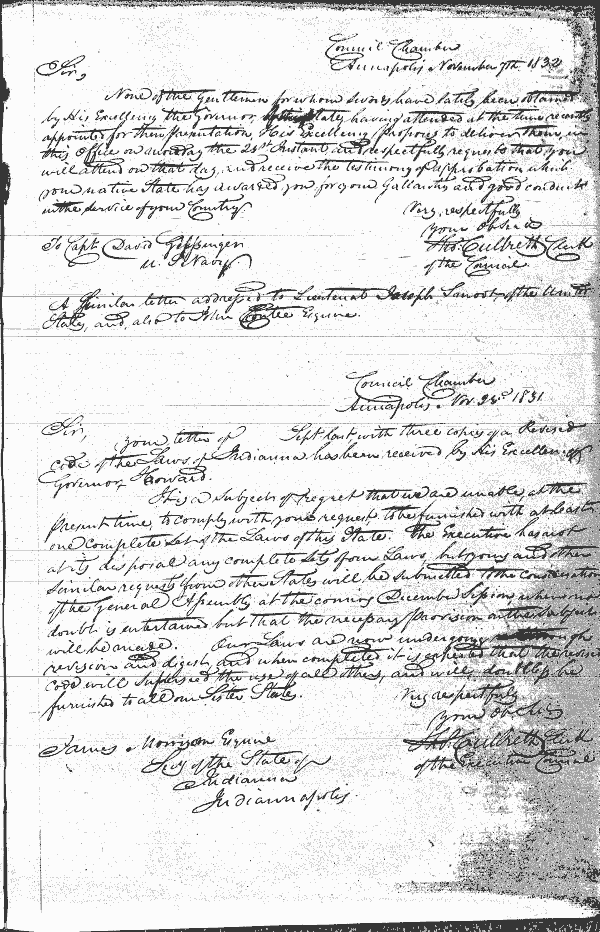 Council Chamber
Annapolis November 7th 1832
Sir,
None of the Gentlemen for whom swords have lately been obtained
by His Excellency the Governor, of this State, having attended at the time recently
appointed for their presentation, His Excellency proposes to deliver them, in
this Office on monday the 21st Instant and respectfully requests that you
will attend on that day, and receive the testimony of approbation which
your native State has awarded you for your Gallantry and good conduct
in the service of your Country
Very respectfully
your Obsert
To Capt David Geissinger
Tho: Culbreth Clerk
U. S Navy
of the Council
A Similar letter addressed to Lieutenant Joseph Smoot of the United
States, and, also to John Contee Esquire.
Council Chamber
Annapolis Nov. 23d 1831
Sir,
your letter of Sept last with three copies of a Revised
code of the Laws of Indianna has been received by His Excellency
Governor Howard.
It is a subject of regret that we are unable, at the
present time, to comply with your request, to be furnished with at least
one complete set of the Laws of this State. The Executive has not
at its disposal any complete sets of our Laws, but yours and other
similar requests from other States will be submitted to the consideration
of the General Assembly at the coming December Session when no
doubt is entertained but that the necessary provision on the subject
will be made. Our Laws are now undergoing through
revision and digest, and when completed it is expected that the revised
code will supersed the use of all others, and will doubtless be
furnished to all our Sister States.
Very respectfully
your Obt Ser
James Morrison Esquire
Tho: Culbreth Clerk
Secy of the State of
of the Executive Council
Indianna
Indiannapolis.